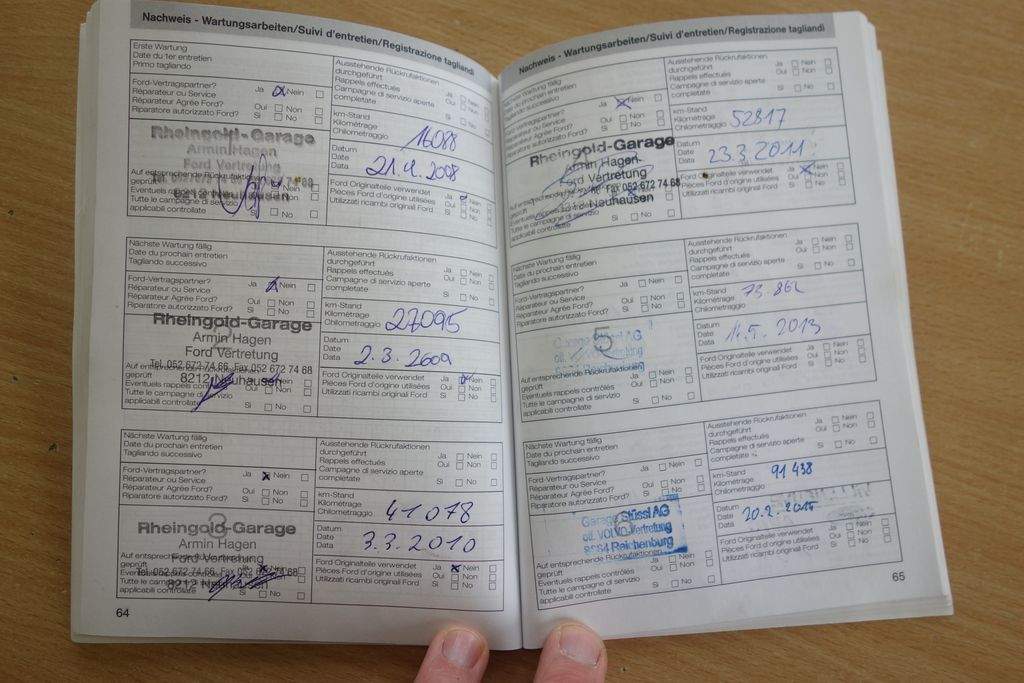 Nachweis - Wartungsarbeiten/Suivi d'entretien/Registrazione tagliandi
Erste Wartung
Date du 1er entretien
Primo tagliando
Ausstehende Rückrufaktionen
durchgeführt
Rappels effectués
Campagne di servizio aperte
completate
Ja Nein
Oui Non
Si No
Ford-Vertragspartner?
Réparateur ou Service
Réparateur Agrée Ford?
Riparatore autorizzato Ford?
Ja Nein
Oui Non
Si No
km-Stand
Kilométrage
Chilometraggio
16088
Rheingold-Garage
Armin Hagen
Ford Vertretung
8212 Neuhausen
Datum
Date
Data
21.4.2008
Auf entsprechende Rückrufaktionen
geprüft
Tutte le campagne di servizio
applicabili controllate
Si No
Ford Originalteile verwendet
Pièces Ford d'origine utilisées
Utilizzati ricambi original Ford
Ja Nein
Oui Non
Si No
Nächste Wartung fällig
Date du prochain entretien
Tagliando successivo
Ausstehende Rückrufaktionen
durchgeführt
Rappels effectués
Campagne di servizio aperte
completate
Ja Nein
Oui Non
Si No
Ford-Vertragspartner?
Réparateur ou Service
Réparateur Agrée Ford?
Riparatore autorizzato Ford?
Ja Nein
Oui Non
Si No
km-Stand
Kilométrage
Chilometraggio
27095
Rheingold-Garage
Armin Hagen
Ford Vertretung
Tel. 052 672 74 66 Fax 052 672 74 68
8212 Neuhausen
Datum
Date
Data
2.3.2009
geprüft
Tutte le campagne di servizio
applicabili controllate
Si No
Ford Originalteile verwendet
Pièces Ford d'origine utilisées
Utilizzati ricambi original Ford
Ja Nein
Oui Non
Si No
Nächste Wartung fällig
Date du prochain entretien
Tagliando successivo
Ausstehende Rückrufaktionen
durchgeführt
Rappels effectués
Campagne di servizio aperte
completate
Ja Nein
Oui Non
Si No
Ford-Vertragspartner?
Réparateur ou Service
Réparateur Agrée Ford?
Riparatore autorizzato Ford?
Ja Nein
Oui Non
Si No
km-Stand
Kilométrage
Chilometraggio
41078
3
Rheingold-Garage
Armin Hagen
Ford Vertretung
Tel. 052 672 74 66 Fax 052 672 74 68
8212 Neuhausen
Datum
Date
Data
3.3.2010
geprüft
Tutte le campagne di servizio
applicabili controllate
Si No
Ford Originalteile verwendet
Pièces Ford d'origine utilisées
Utilizzati ricambi original Ford
Ja Nein
Oui Non
Si No
64
Nachweis - Wartungsarbeiten/Suivi d'entretien/Registrazione tagliandi
Nächste Wartung fällig
Date du prochain entretien
Tagliando successivo
Ausstehende Rückrufaktionen
durchgeführt
Rappels effectués
Campagne di servizio aperte
completate
Ja Nein
Oui Non
Si No
Ford-Vertragspartner?
Réparateur ou Service
Réparateur Agrée Ford?
Riparatore autorizzato Ford?
Ja Nein
Oui Non
Si No
km-Stand
Kilométrage
Chilometraggio
52817
Rheingold-Garage
Armin Hagen
Ford Vertretung
Fax 052 672 74 68
Neuhausen
Datum
Date
Data
23.3.2011
geprüft
Tutte le campagne di servizio
applicabili controllate
Si No
Ford Originalteile verwendet
Pièces Ford d'origine utilisées
Utilizzati ricambi original Ford
Ja Nein
Oui Non
Si No
Nächste Wartung fällig
Date du prochain entretien
Tagliando successivo
Ausstehende Rückrufaktionen
durchgeführt
Rappels effectués
Campagne di servizio aperte
completate
Ja Nein
Oui Non
Si No
Ford-Vertragspartner?
Réparateur ou Service
Réparateur Agrée Ford?
Riparatore autorizzato Ford?
Ja Nein
Oui Non
Si No
km-Stand
Kilométrage
Chilometraggio
5
Datum
Date
Data
2013
Auf entsprechende Rückrufaktionen
geprüft
Eventuels rappels contrôlés
Tutte le campagne di servizio
applicabili controllate
Ja Nein
Oui Non
Si No
Ford Originalteile verwendet
Pièces Ford d'origine utilisées
Utilizzati ricambi original Ford
Ja Nein
Oui Non
Si No
Nächste Wartung fällig
Date du prochain entretien
Tagliando successivo
Ausstehende Rückrufaktionen
durchgeführt
Rappels effectués
Campagne di servizio aperte
completate
Ja Nein
Oui Non
Si No
Ford-Vertragspartner?
Réparateur ou Service
Réparateur Agrée Ford?
Riparatore autorizzato Ford?
Ja Nein
Oui Non
Si No
km-Stand
Kilométrage
Chilometraggio
91 438
Garage Stüssi AG
off. VOLVO Vertretung
8864 Reichenburg
Datum
Date
Data
20.2.2015
Auf entsprechende Rückrufaktionen
geprüft
Eventuels rappels contrôlés
Tutte le campagne di servizio
applicabili controllate
Ja Nein
Oui Non
Si No
Ford Originalteile verwendet
Pièces Ford d'origine utilisées
Utilizzati ricambi original Ford
Ja Nein
Oui Non
Si No
65